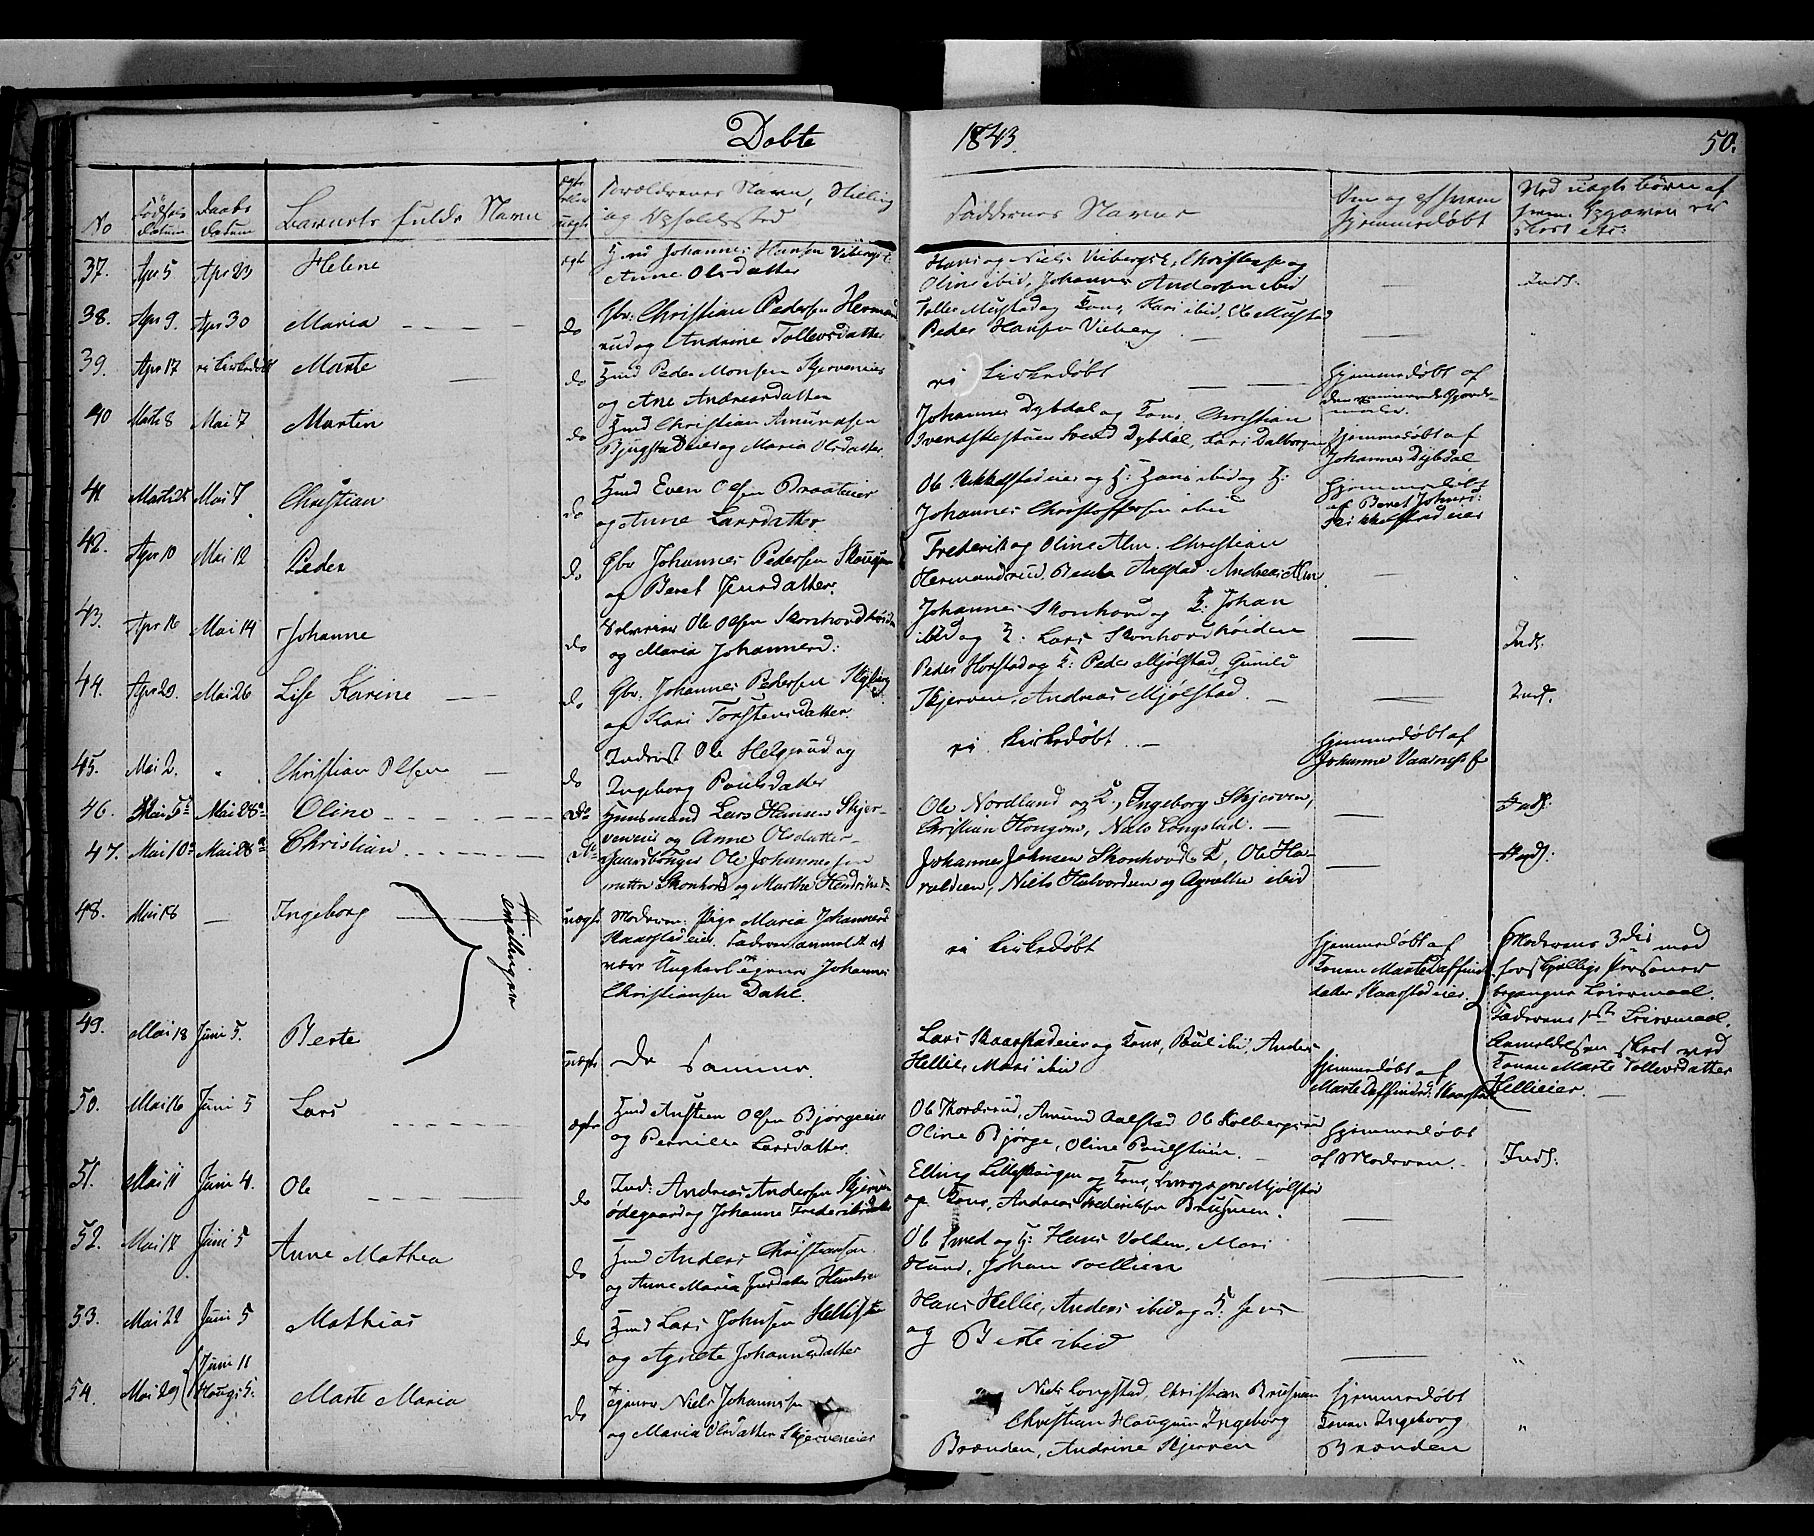 Døbte 1843. 50.
No Fødsels Datum Daabs Datum Barnets fulde Navn ægte eller uægte Forældrenes Navn, Stilling og Opholdssted Faddernes Navne Om og af hvem hjemmedøbt Ved uægte børn af hvem Opgaven er skeet etc:
37. Apr 5 Apr 23 Helene ægt Johannes Hansen Vibergs
Anne Olsdatter
Hans og Niels Viebergs E, Christense og
Oline ibid, Johannes Andersen ibid
— Inds.
38. Apr 9. Apr 30 Maria — do Gbr: Christian Pedersen Herman
rud og Andrine Tollevsdatter
Tolle Mustad og Kone, Kari ibid, Ole Mustad
Peder Hansen Vieberg —
39. Apr 17 ei kirkedøbt Marte — do Hmd Peder Monsen Skjerveneier
og Ane Andreasdatter
ei kirkedøbt — —
Hjemmedøbt af
40 Marts 8 Mai 7 Martin do Hmd Christian Amundsen
Bjugstadeier og Maria Olsdatter
Johannes Dybdal og Kone, Christian
Svend Dybdal, Kari Dalborgen
Hjemmedøbt af
Johannes Dybdal
41 Mai 7 Christian do Hmd Even Olsen Braateneier
og Anne Larsdatter
Ole Sikkelstadeier og K: Hans ibid og K:
Johannes Christoffersen ibid
Hjemmedøbt
af Beret Johnsd:
Sikkelstadeier
42. Apr 10 Mai 12 Peder do Gbr Johannes Pedersen
og Beret Jensdatter.
Frederik og Oline Alm. Christian
Hermandrud, Aalstad. Andreas Alm —
43. Apr 16 Mai 14 Johanne do Ole Olsen Skonhovd
og Maria Johannesd:
Johannes Skonhovd og K: Johan
ibid og K: Lars Skonhovdhøiden
— Inds.
44. Apr 20. Mai 26 Lise Karine — do Gbr: Johannes Pedersen
og Kari Torstensdatter.
Peder Horstad og K: Peder Mjølstad, Gunild
Skjerven, Andreas Mjølstad. — — Inds.
45. Mai 2. " Christian Olsen — do Inderst Ole Helgerud og
Ingeborg Poulsdatter
ei kirkedøbt. —
Hjemmedøbt af
Johanne
46. Mai 5te Mai 28de Oline — do Huusmand Lars Hansen Skjer-
veneier og Anne Olsdatter
Ole Nordland og K., Ingeborg Skjerven,
Christian Hougen, Niels Longstad. — — Inds.
47. Mai 10de Mai 28de Christian — do Gaardbruger Ole Johannessen
Skonhovd og Marthe
Johannes Johnsen Skonhovd & K, Ole Ha-
Niels Halvordsen og Agnethe ibid — Inds:
48. Mai 18 — Ingeborg — uægte Moderen: Pige Maria Johannesd
Skaarstadeier. Faderen anmeldt at
være Ungkarl tjener Johannes
Christiansen Dahl.
Tvillinger
ei kirkedøbt
Hjemmedøbt af
Konen Marte
datter Skaarstadeier.
Moderens 3die med
forskjellige Personer
begangne Leiermaal.
Faderens 1ste Leiermaal.
Anmeldelsen skeet ved
Konen Marte Tollevsdatter
Hellieier. —
49. Mai 18 Juni 5. Berte uægte De samme
Lars Skaarstadeier og Kone, Poul ibid, Anders
Hellie, Mari ibid
Hjemmedøbt af
Marte
50. Mai 16 Juni 5 Lars — ægte Hmd Austen Olsen Bjørgeeier
og Pernille Larsdatter.
Ole Thordsrud, Amund Aalstad Ole
Oline Bjørge, Oline Poulstuen. —
Hjemmedøbt
af Moderen. — Inds.
51. Mai 11 Juni 4. Ole — do Ind: Andreas Andersen Skjerven
ødegaard og Johanne Frederiksdatter
Elling Lilleskougen og Kone, Mjølstad
og Kone, Andreas Frederiksen Brusveen. —
52. Mai 12 Juni 5 Anne Mathea do Hmd Anders Christiansen
og Anne Maria Jensdatter
Ole Smed og K: Hans Volden, Mari
Hund, Johan —
53. Mai 22 Juni 5 Mathias do Hmd Lars Johnsen
og Agnete Johannesdatter
Hans Hellie, Anders ibid og Jens
og Berte ibid —
54. Mai 29 Juni 11 Marte Maria do tjener Niels Johannessen
og Maria Olsdatter Skjerveneier
Niels Longstad, Christian
Christian Hougen Ingeborg
Brænden, Andrine Skjerven
Hjemmedøbt
Konen Ingeborg
Brænden